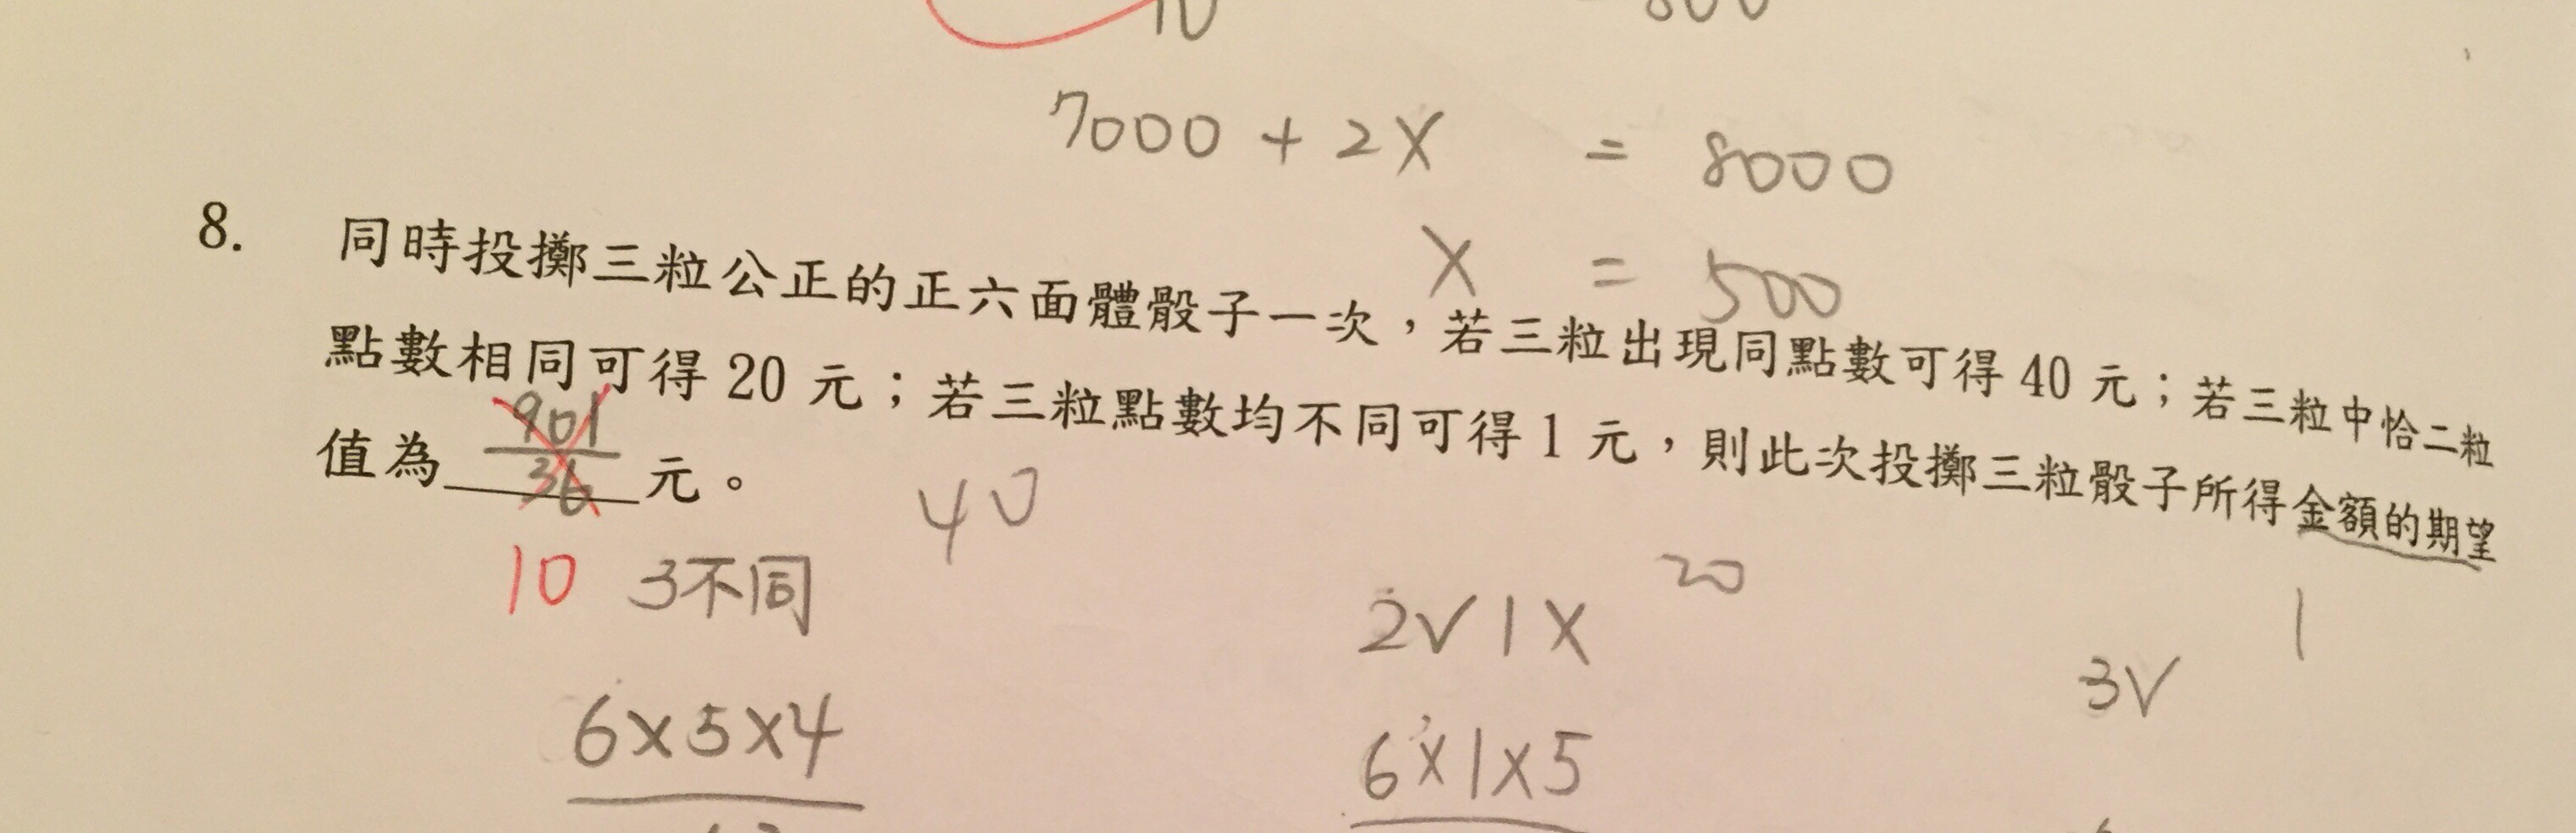 10
800
7000 + 2X = 8000
X = 500
8. 同時投擲三粒公正的正六面體骰子一次，若三粒出現同點數可得 40 元；若三粒中恰二粒
點數相同可得 20 元；若三粒點數均不同可得 1 元，則此次投擲三粒骰子所得金額的期望
值為 901/36 元。
40
10 3不同
20
2√1X
1
3√
6×5×4
6×1×5